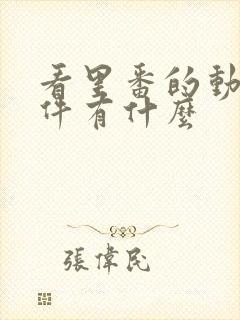 看里番的動
件有什麼
張偉民